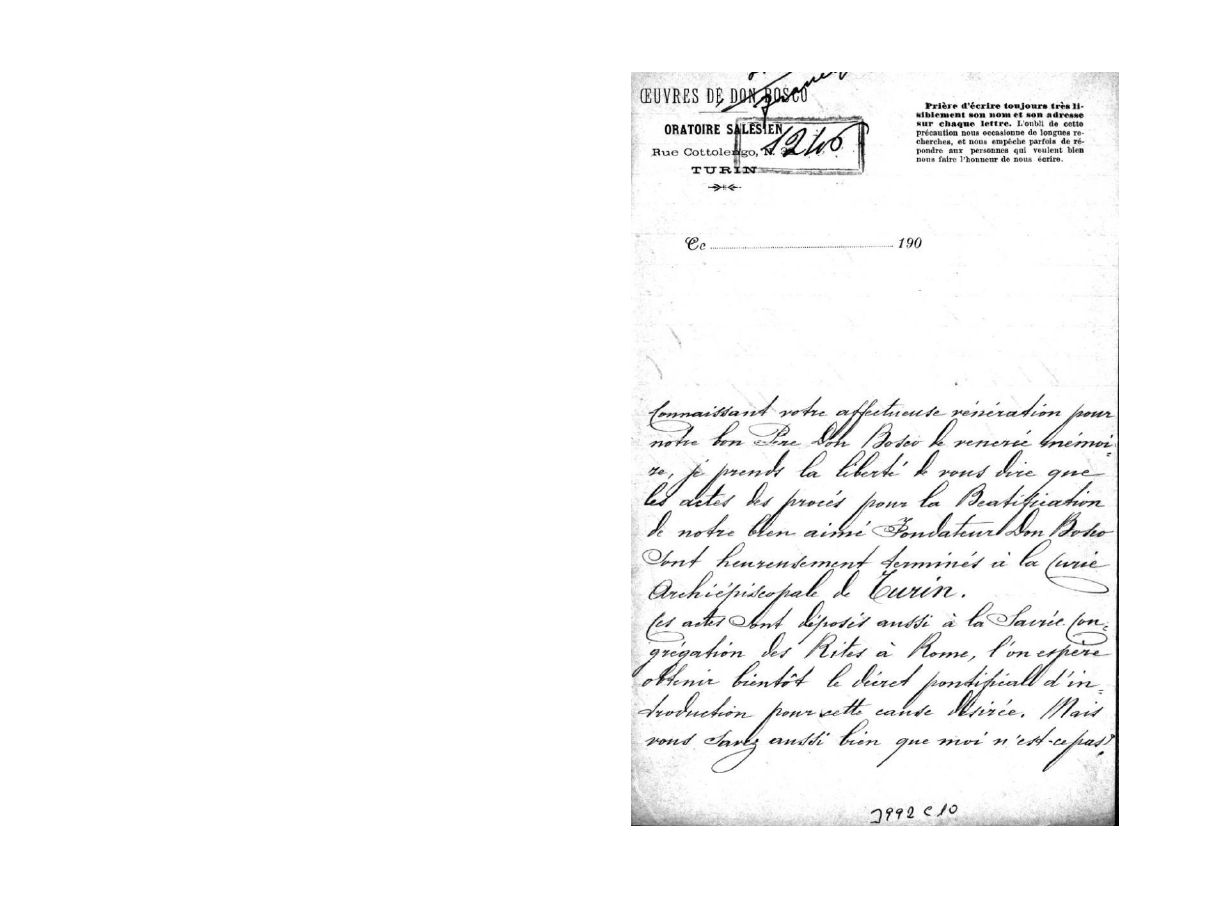 ŒUVRES DE DON BOSCO
ORATOIRE SALÉSIEN
Rue Cottolengo, N. 32
TURIN
1246
Prière d'écrire toujours très li-
siblement son nom et son adresse
sur chaque lettre. L'oubli de cette
précaution nous occasionne de longues re-
cherches, et nous empêche parfois de ré-
pondre aux personnes qui veulent bien
nous faire l'honneur de nous écrire.
Ce 190
Connaissant votre affectueuse vénération pour
notre bon Père Don Bosco de venerée mémoi=
re, je prends la liberté de vous dire que
les actes des procés pour la Beatification
de notre bien aimé Fondateur Don Bosco
sont heureusement terminés à la Curie
Archiépiscopale de Turin.
Ces actes sont déposés aussi à la Sacrée Con=
grégation des Rites à Rome, l'on espère
obtenir bientôt le décret pontifical d'in=
troduction pour cette cause désirée. Mais
vous savez aussi bien que moi n'est-ce pas?
J992 C10